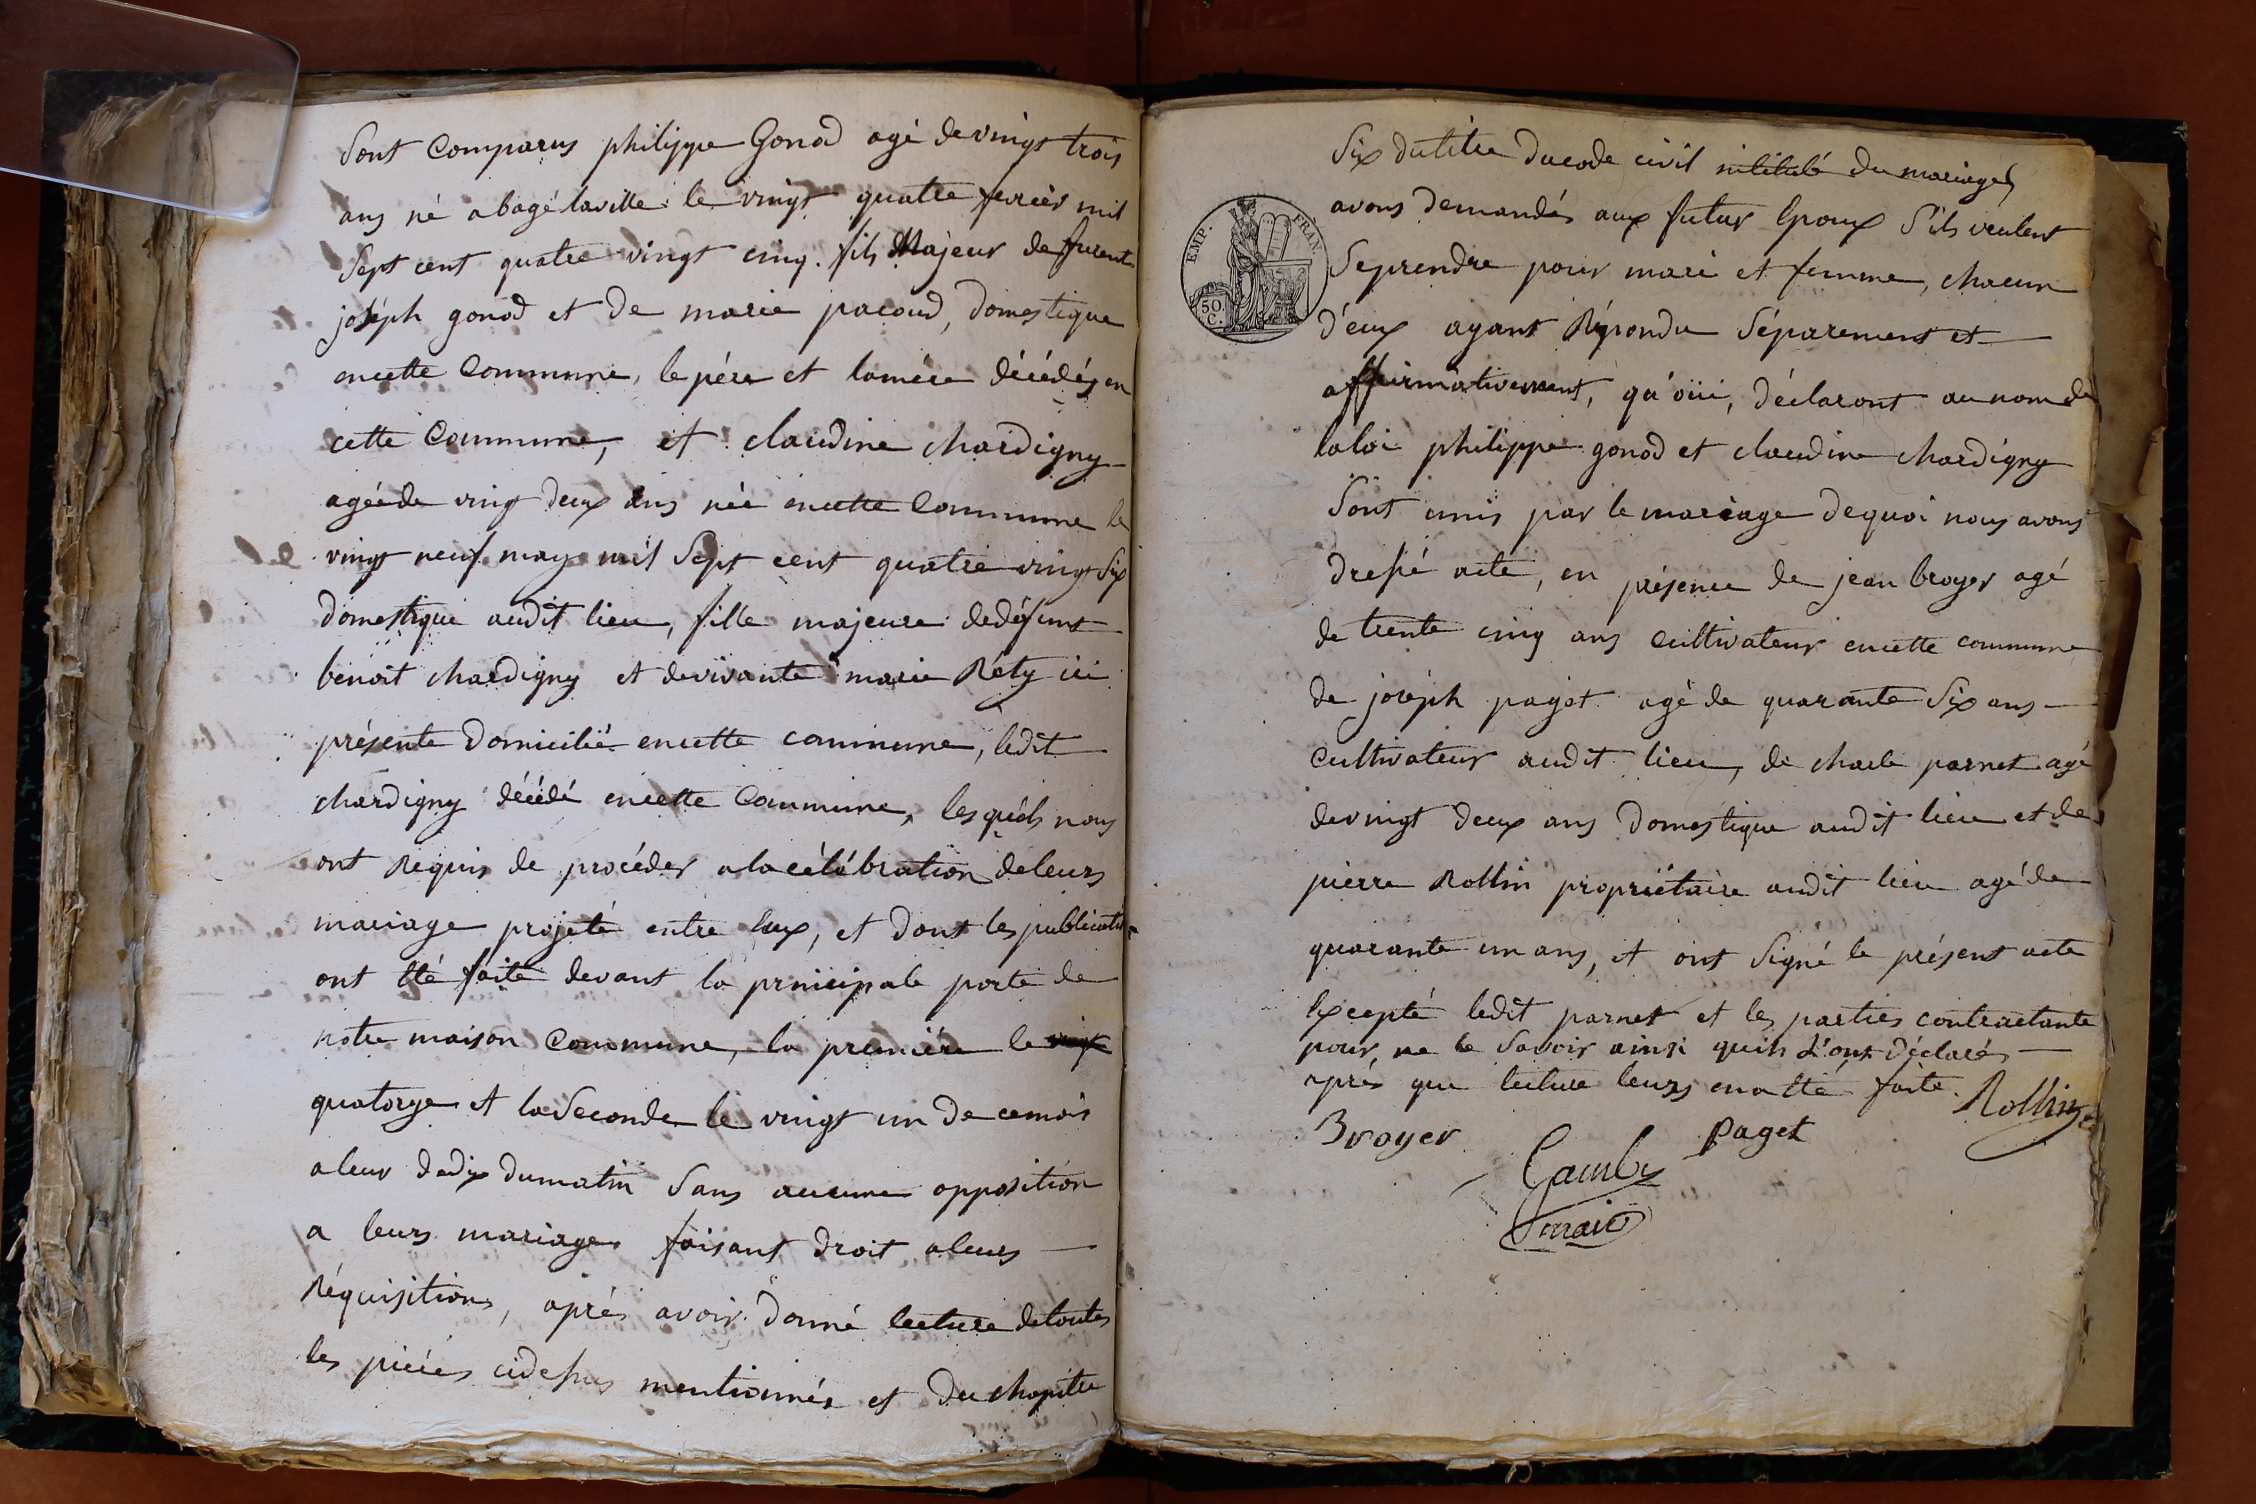 Sont Comparus philippe Gonod agé de vingt trois
ans né a bagé laville le vingt quatre fevrier mil
Sept cent quatre vingt cinq. fils Majeur de furent
joséph gonod et De marie pacoud, domestique
encette Commune, le pére et lamére décédés en
cette Commune, et claudine chardigny
agéede vingt deux ans née encette Commune le
vingt neuf may mil Sept cent quatre vingt Six
domestique audit lieu, fille majeure dedéfunt
benoit chardigny et devivante marie Réty ici
présente Domicilié encette commune, ledit
chardigny décédé encette Commune, lesquéls nous
ont Requis de procéder alacélébration deleurs
mariage projeté entre Eux, et Dont les publicati
ont Eté faite devant la principale porte de
notre maison Commune, la premiére le vingt
quatorze et laSeconde le vingt un De cemois
aleur dedix dumatin Sans aucune opposition
a leurs mariages faisant Droit aleurs
Réquisitions, aprés avoir Donné lecture detoutes
les piéces cidessus mentionnés et Du chapitre
Six dutitre Ducode civil intitulé Du mariages
EMP. FRAN.
50.
C.
avons Demandés aux futur Epoux S'ils veulent
Seprendre pour mari et femme, chacun
d'eux ayant Répondu Séparement et
affirmativement, qu'oüi, Déclaront aunomde
laloi philippe gonod et claudine chardigny
Sont unis par le mariage Dequoi nous avons
Dressé acte, en présence de jean broyer agé
de trente cinq ans Cultivateur encette commune
de joséph paget agé de quarante Six ans
Cultivateur audit lieu, de charle parnet agé
devingt Deux ans Domestique audit lieu et de
pierre Rollin propriétaire audit lieu agéde
quarante un ans, et ont Signé le présent acte
Excepté ledit parnet et les parties contractante
pour ne le Savoir ainsi quils L'ont Déclarés
aprés que lecture leurs ena Eté faite.
Rollin
Broyer Paget